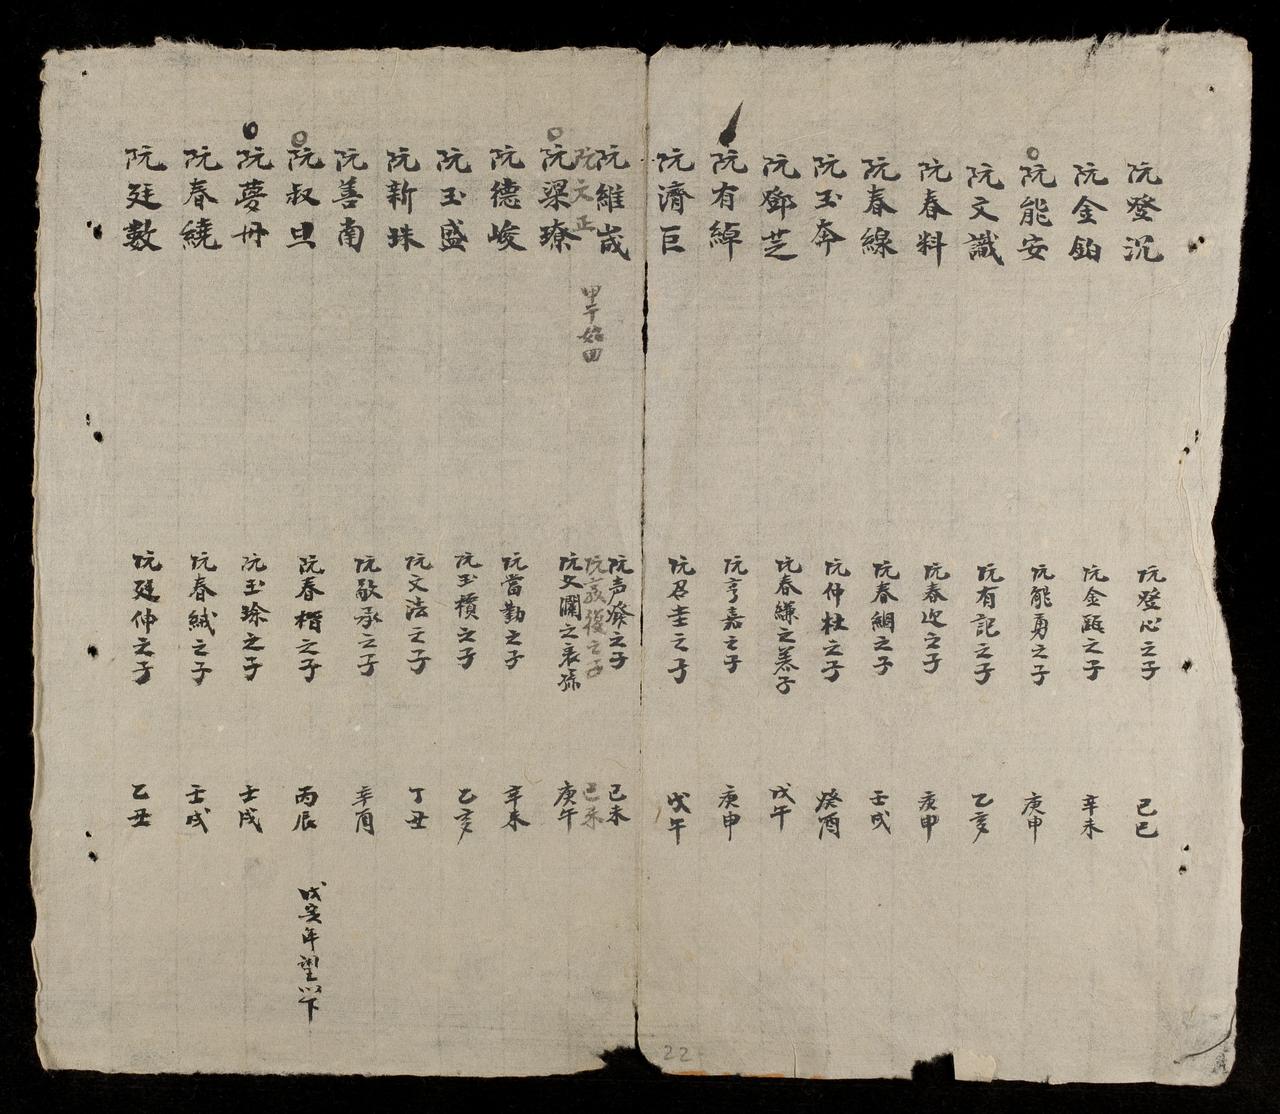 阮登沉 阮登心之子 己巳
阮金鉑 阮金題之子 辛未
阮能安 阮能勇之子 庚申
阮文識 阮有記之子 乙亥
阮春料 阮春迎之子 庚申
阮春線 阮春綢之子 壬戌
阮玉奔 阮仲杜之子 癸酉
阮鄧芝 阮春縑之養子 戊午
阮有綽 阮亨嘉之子 庚申
阮濟巨 阮召圭之子 戊午
阮維峸 阮声癸之子 己未
阮文正 甲午始回 阮
復之子 己未
阮梁療 阮文瀾之表孫 庚午
阮德峻 阮當勤之子 辛未
阮玉盛 阮玉積之子 乙亥
阮新珠 阮文法之子 丁丑
阮善南 阮敬承之子 辛酉
阮叔旦 阮春楷之子 丙辰 戊亥年望以下
阮夢冊 阮玉珍之子 壬戌
阮春繞 阮春絨之子 壬戌
阮廷數 阮廷仲之子 乙丑
22